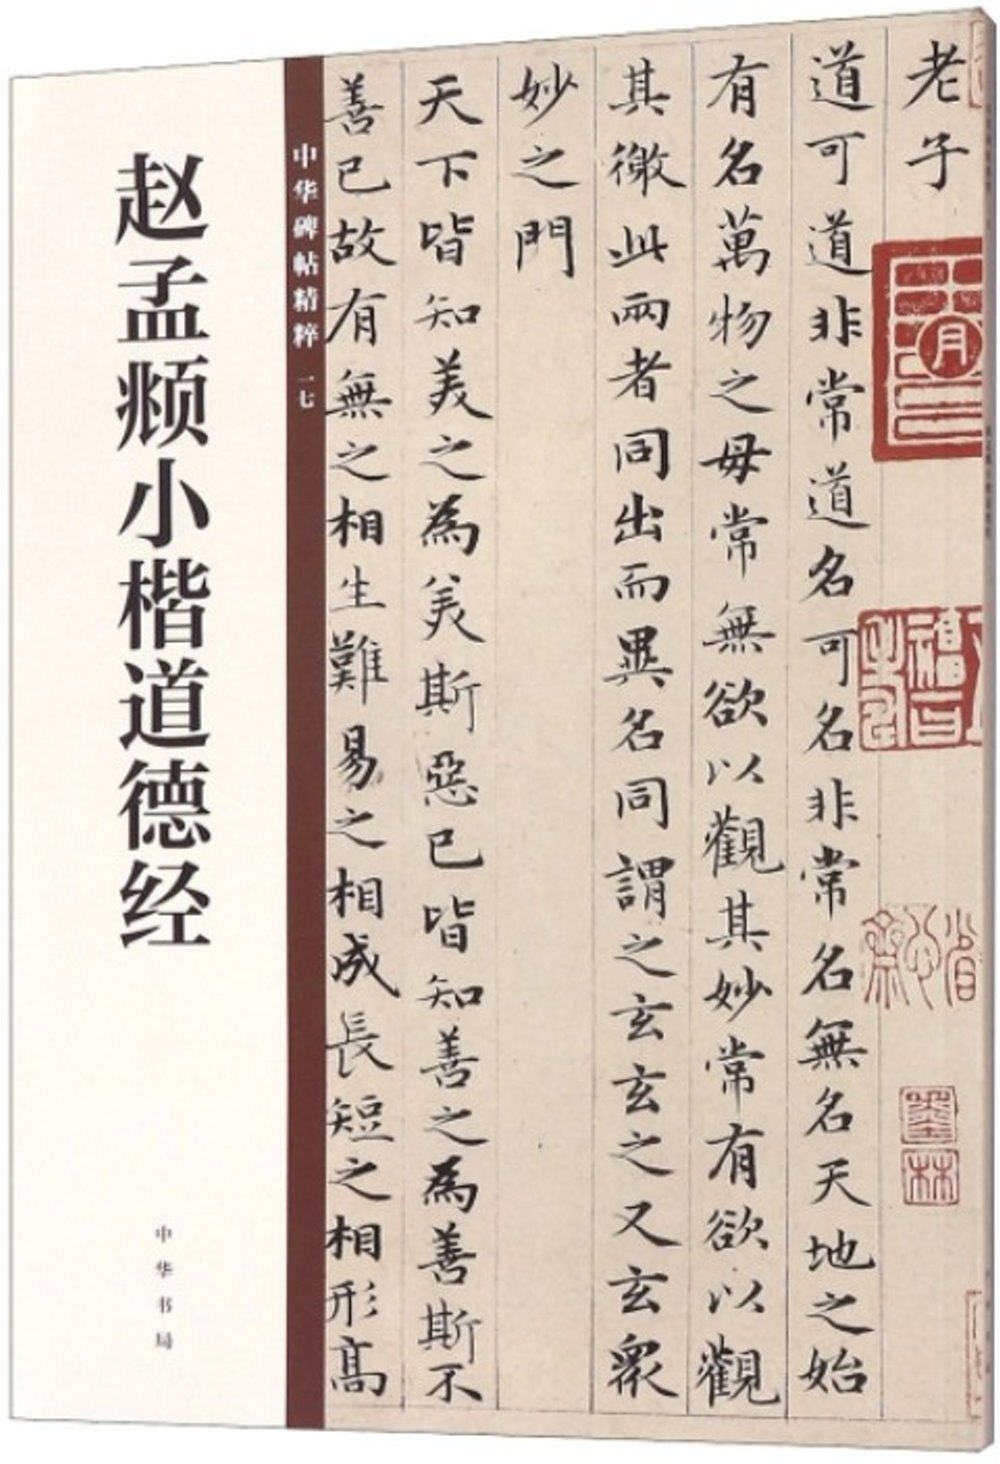 赵孟𫖯小楷道德经
中华书局
中华碑帖精粹 一七
老子
道可道非常道名可名非常名無名天地之始
有名萬物之母常無欲以觀其妙常有欲以觀
其徼此兩者同出而異名同謂之玄玄之又玄衆
妙之門
天下皆知美之為美斯惡已皆知善之為善斯不
善已故有無之相生難易之相成長短之相形高
墨林